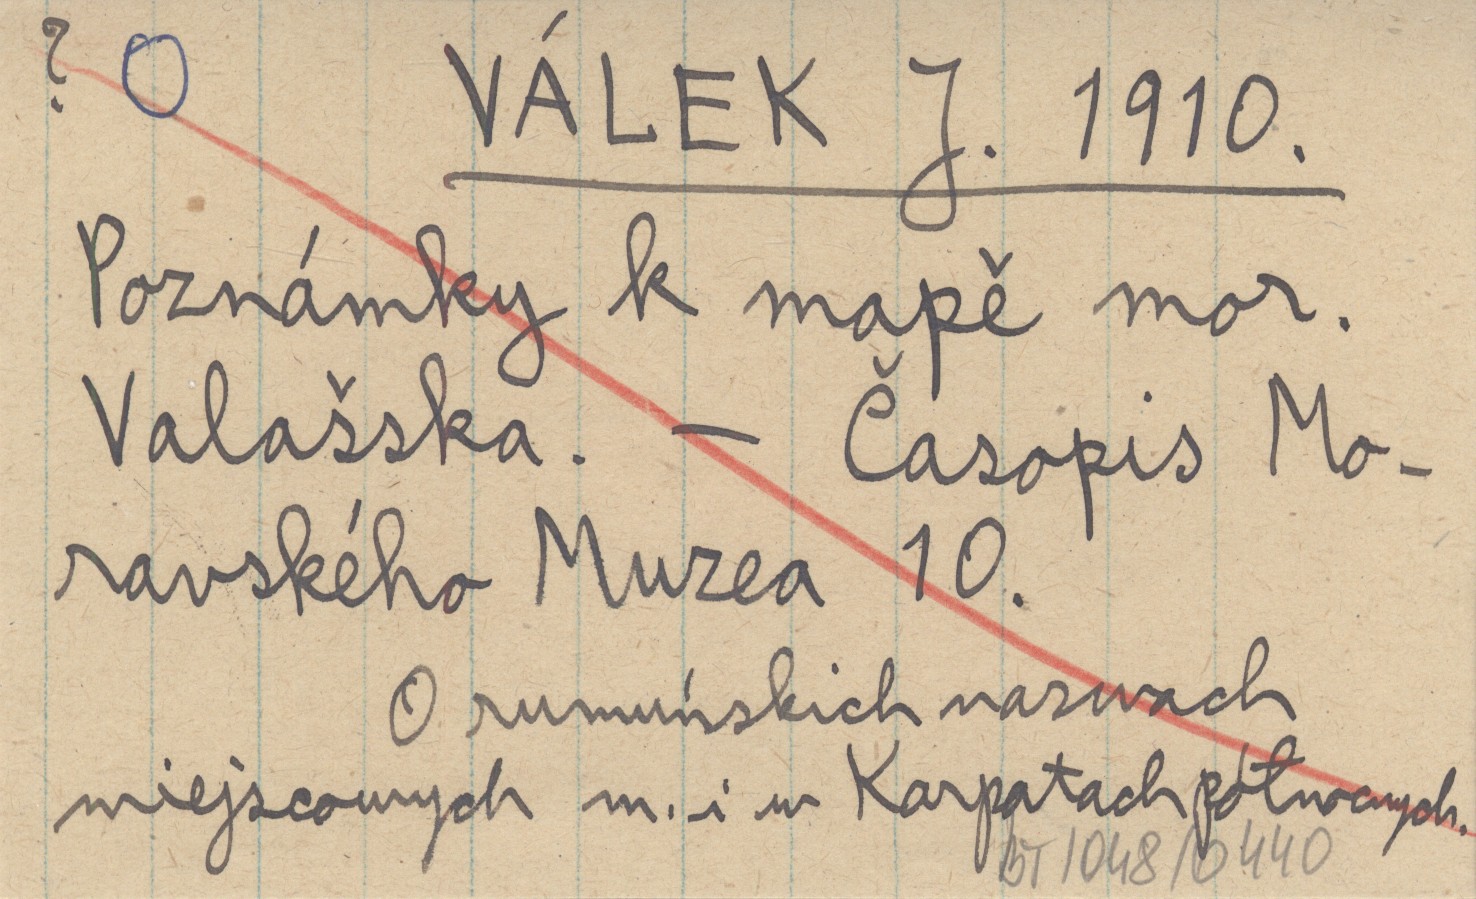 ? O VÁLEK J. 1910.
Poznámky k mapě mor.
Valašska. — Časopis Mo-
ravského Muzea 10.
O rumuńskich nazwach
miejscowych m. i w Karpatach północnych.
BT/048/0440